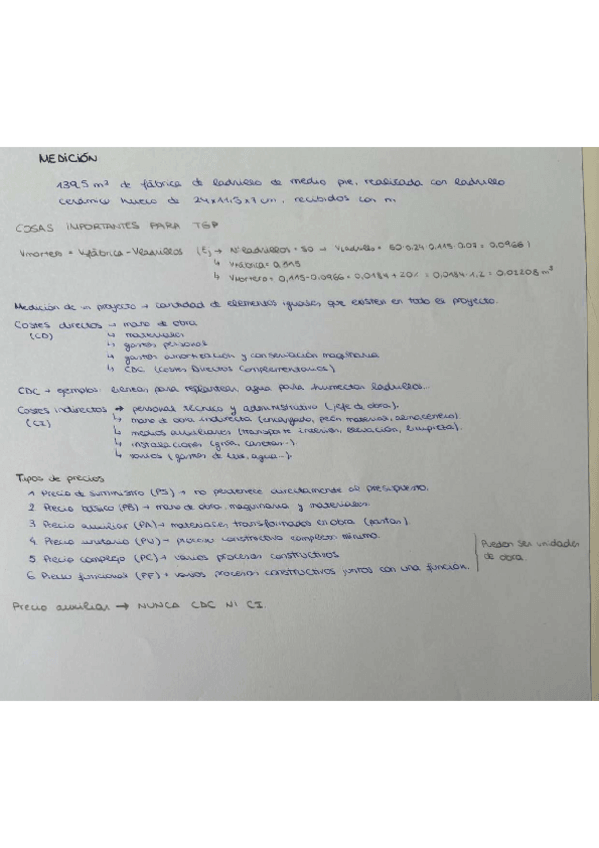 MEDICIÓN
139,5 m² de fábrica de ladrillo de medio pie, realizada con ladrillo
cerámico hueco de 24x11,5x7 cm, recibidos con m
COSAS IMPORTANTES PARA TGP
Vmortero = Vfábrica - Vladrillos (Ej → Nºladrillos = 50 → Vladrillo = 50·0.24·0.115·0.07 = 0,0966)
↳ Vfábrica =
↳ Vmortero = 0,115-0.0966 = 0,0184 + 20% = 0,0184·1.2 = 0.02208 m³
Medición de un proyecto → cantidad de elementos iguales que existen en todo el proyecto.
Costes directos → mano de obra
(CD) ↳ materiales
↳ gastos personal
↳ gastos amortización y conservación maquinaria
↳ CDC (Costes Directos Complementarios)
CDC → ejemplos: para replantear, agua para humectar ladrillos...
Costes indirectos → personal técnico y administrativo (jefe de obra).
(CI) ↳ mano de obra indirecta (encargado, peón materiales, almacenero).
↳ medios auxiliares (transporte interior, elevación, limpieza).
↳ instalaciones (grúa, casetas...).
↳ varios (gastos de luz, agua...).
Tipos de precios
1 Precio de suministro (PS) → no pertenece directamente al presupuesto.
2 Precio básico (PB) → mano de obra, maquinaria y materiales.
3 Precio auxiliar (PA) → materiales transformados en obra (pastas).
4 Precio unitario (PU) → proceso constructivo completo mínimo.
5 Precio complejo (PC) → varios procesos constructivos
6 Precio funcional (PF) → varios procesos constructivos juntos con una función.
Pueden ser unidades
de obra.
Precio auxiliar → NUNCA CDC NI CI.